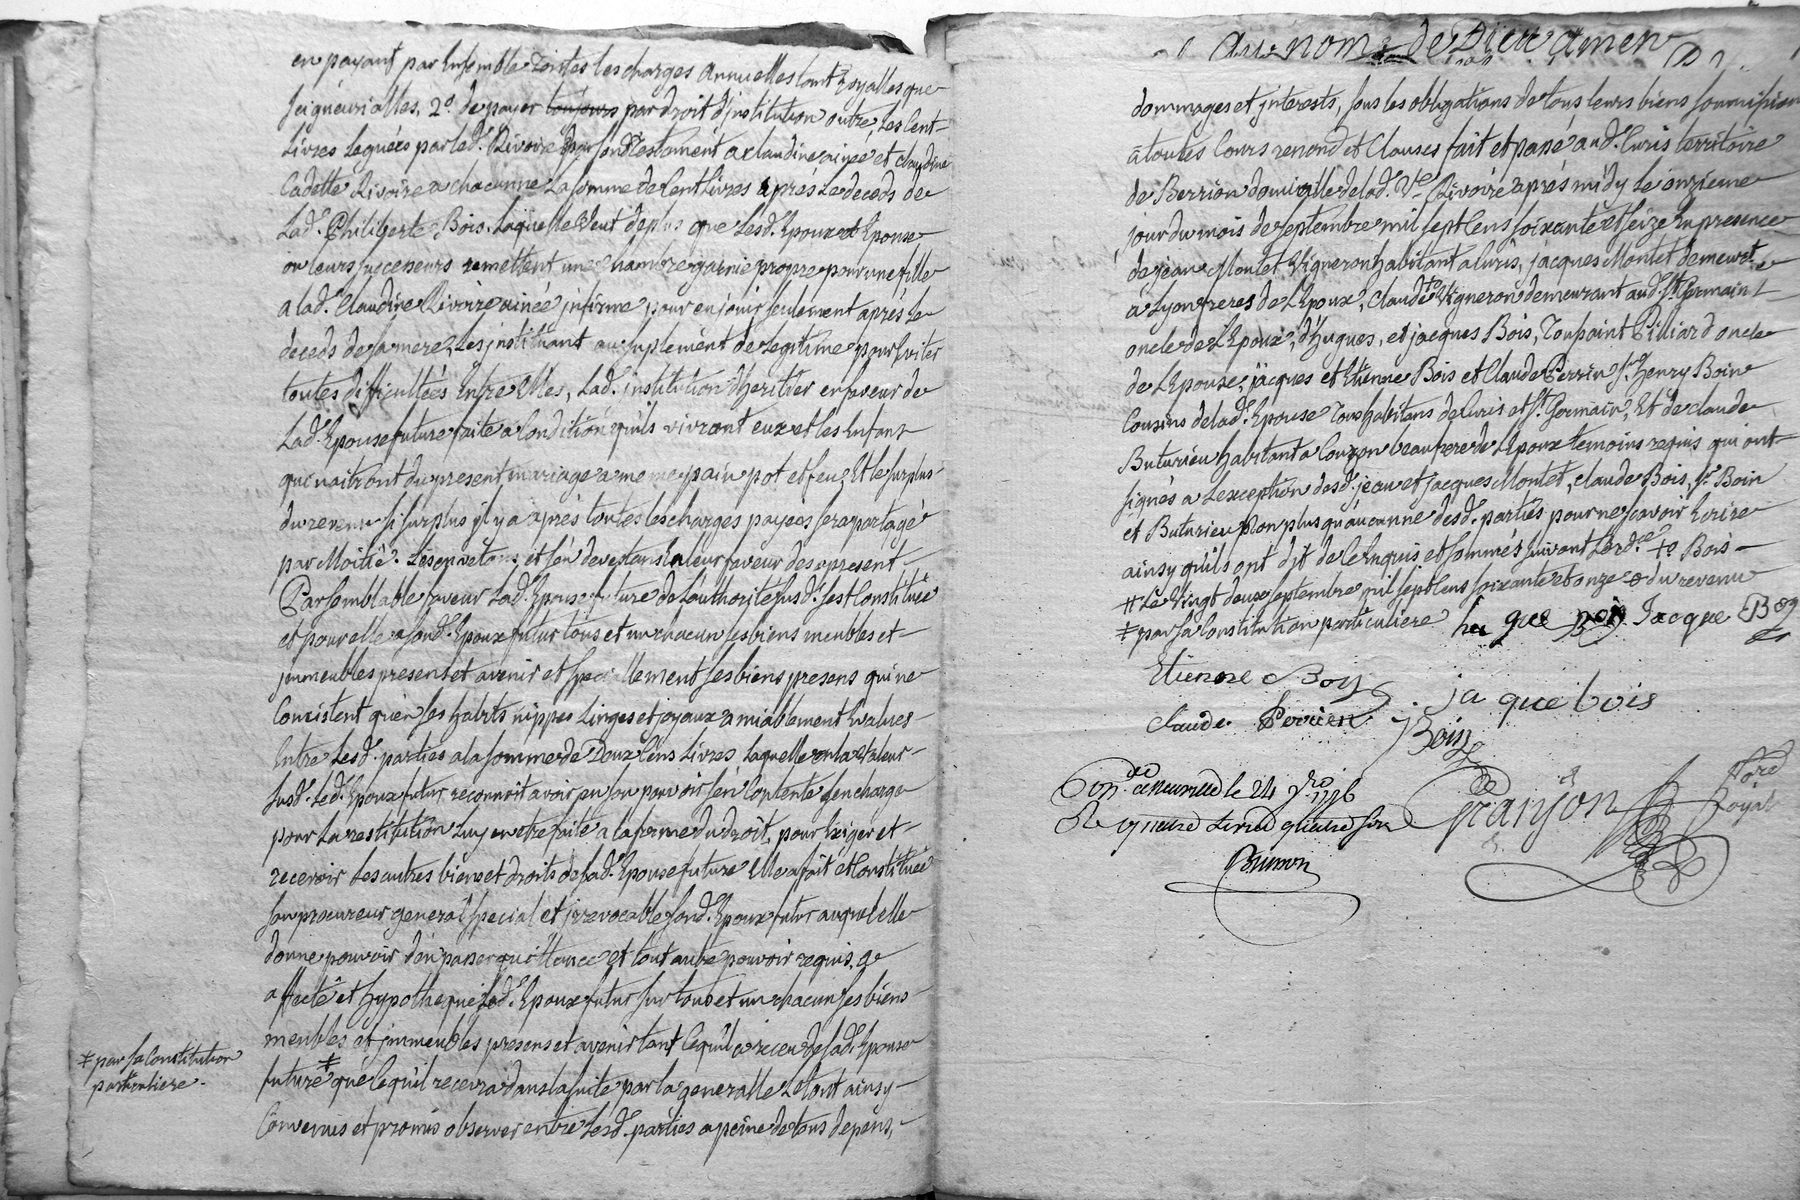 en payant par Ensemble Toutes les charges annuelles tant Royalles que
seigneurialles, 2°. de payer toujours par droit d'institution outre les Cent
Livres Legués par led. Rivoire par son testament a claudine ainée et claudine
Cadette Rivoire a chacunne La somme de Cent Livres après Le deceds de
Lad. Philiberte Bois, Laquelle veut de plus que Lesd. Epoux et Epouse
ou leurs successeurs remettent une chambre garnie propre pour une fille
a lad. Claudine Rivoire ainée infirme, pour en jouir seulement après Le
deceds de sa mere, Les instituant au suplément de Legitime pour Eviter
toutes difficultées Entre Elles, Lad. institution d'heritier en faveur de
Lad. Epouse future faite a Condition qu'ils vivront eux et les Enfant
qui naitront du present mariage a meme pain pot et feu, Et le surplus
du revenu si surplus il y a après toutes les charges payées sera partagé
par Moitié. Les en vétons et s'en devetans En leur faveur des apresent
Par semblable faveur Lad. Epouse future de L'authorité susd. s'est Constituée
et pour elle a sond. Epoux futur tous et un chacun ses biens meubles et
immeubles presens et avenir et speciallement ses biens presens qui ne
Consistent qu'en ses habits nippes Linges et joyaux amiablement Evalués
Entre Lesd. parties a la somme de Deux Cens Livres Laquelle ou la valeur
susd. Led. Epoux futur reconnoit avoir en son pouvoir s'en Contente s'en charge
pour La restitution Luy en etre faite a la forme du droit, pour Exiger et
recevoir Les autres biens et droits de Lad. Epouse future Elle a fait et Constituée
son procureur general special et irrevocable sond. Epoux futur auquel elle
donne pouvoir d'en passer quittance et tout autre pouvoir requis, a
affecté et hypothequé led. Epoux futur sur tous et un chacun ses biens
meubles et immeubles presens et avenir tant Ce qu'il a recu de lad. Epouse
‡ par sa Constitution
particuliere.
future ‡ que Ce qu'il recevra dans la suite par la generalle Le tout ainsy
Convenus et promis observer entre Lesd. parties a peine de tous depens,
au nom de Dieu amen
dommages et interests, sous les obligations de tous leurs biens soumission
a toutes Cours renond. et Clauses fait et passé aud. Curis territoire
de Berrion domicille de lad. Ve. Rivoire après midy Le onzieme
jour du mois de septembre mil sept Cens soixante et seize En presence
de jean Montet Vigneron habitant a Curis, jacques Montet demeurt.
a Lyon freres de L'Epoux, Claude Vigneron demeurant aud. St. Germain
oncle de L'Epoux, d'hugues, et jacques Bois, Toussaint Pilliard oncle
de L'Epouse, jacques et Etienne Bois et Claude Perrin Sr. Henry Boin
Cousins de lad. Epouse Tous habitans de Curis et St. Germain, Et de claude
Buturieu habitant a Couzon beaupere de L'Epoux temoins requis qui ont
signés a L'exception desd. jean et jacques Montet, Claude Bois, Sr. Boin
et Buturieu Non plus qu'aucunne desd. parties pour ne sçavoir Ecrire
ainsy qu'ils ont dit de Ce Enquis et sommés suivant L'ord.ce Bois
Le Vingt deux septembre mil sept Cens soixante et onze du revenu
‡ par sa Constitution particuliere
Jacque Boy
Etienne Boy
jaque bois
Claude Perrien
Boin
Con.lé a neuville le 24 7bre 1776
Granjon Nore Royal
Brunon